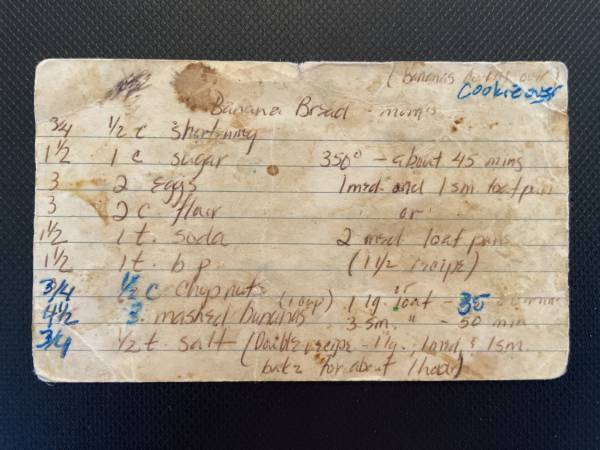 (Bananas
Cookies over
Banana Bread - mom's
3/4 1/2 c shortening
1 1/2 1 c sugar 350° - about 45 mins
3 2 eggs 1 med. and 1 sm loaf pan
3 2 c. flour or
1 1/2 1 t. soda 2 med loaf pans
1 1/2 1 t. b p (1 1/2 recipe)
3/4 1/2 c chop nuts or
4 1/2 3 mashed bananas (1 cup) 1 lg. loaf - 35
3 sm. " - 50 min
3/4 1/2 t. salt (Double recipe - 1 lg., 1 md, & 1 sm.
bake for about 1 hour)